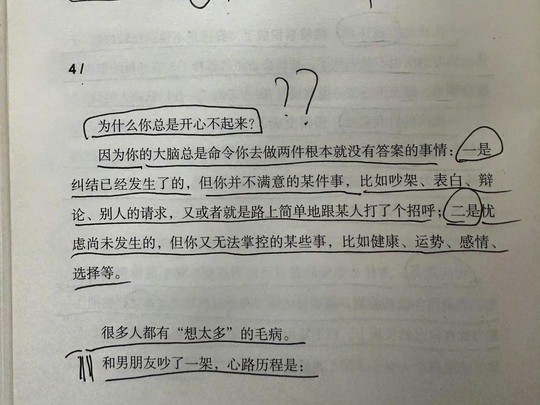 4/
??
为什么你总是开心不起来?
因为你的大脑总是命令你去做两件根本就没有答案的事情:一是
纠结已经发生了的,但你并不满意的某件事,比如吵架、表白、辩
论、别人的请求,又或者就是路上简单地跟某人打了个招呼;二是忧
虑尚未发生的,但你又无法掌控的某些事,比如健康、运势、感情、
选择等。
很多人都有“想太多”的毛病。
和男朋友吵了一架,心路历程是: